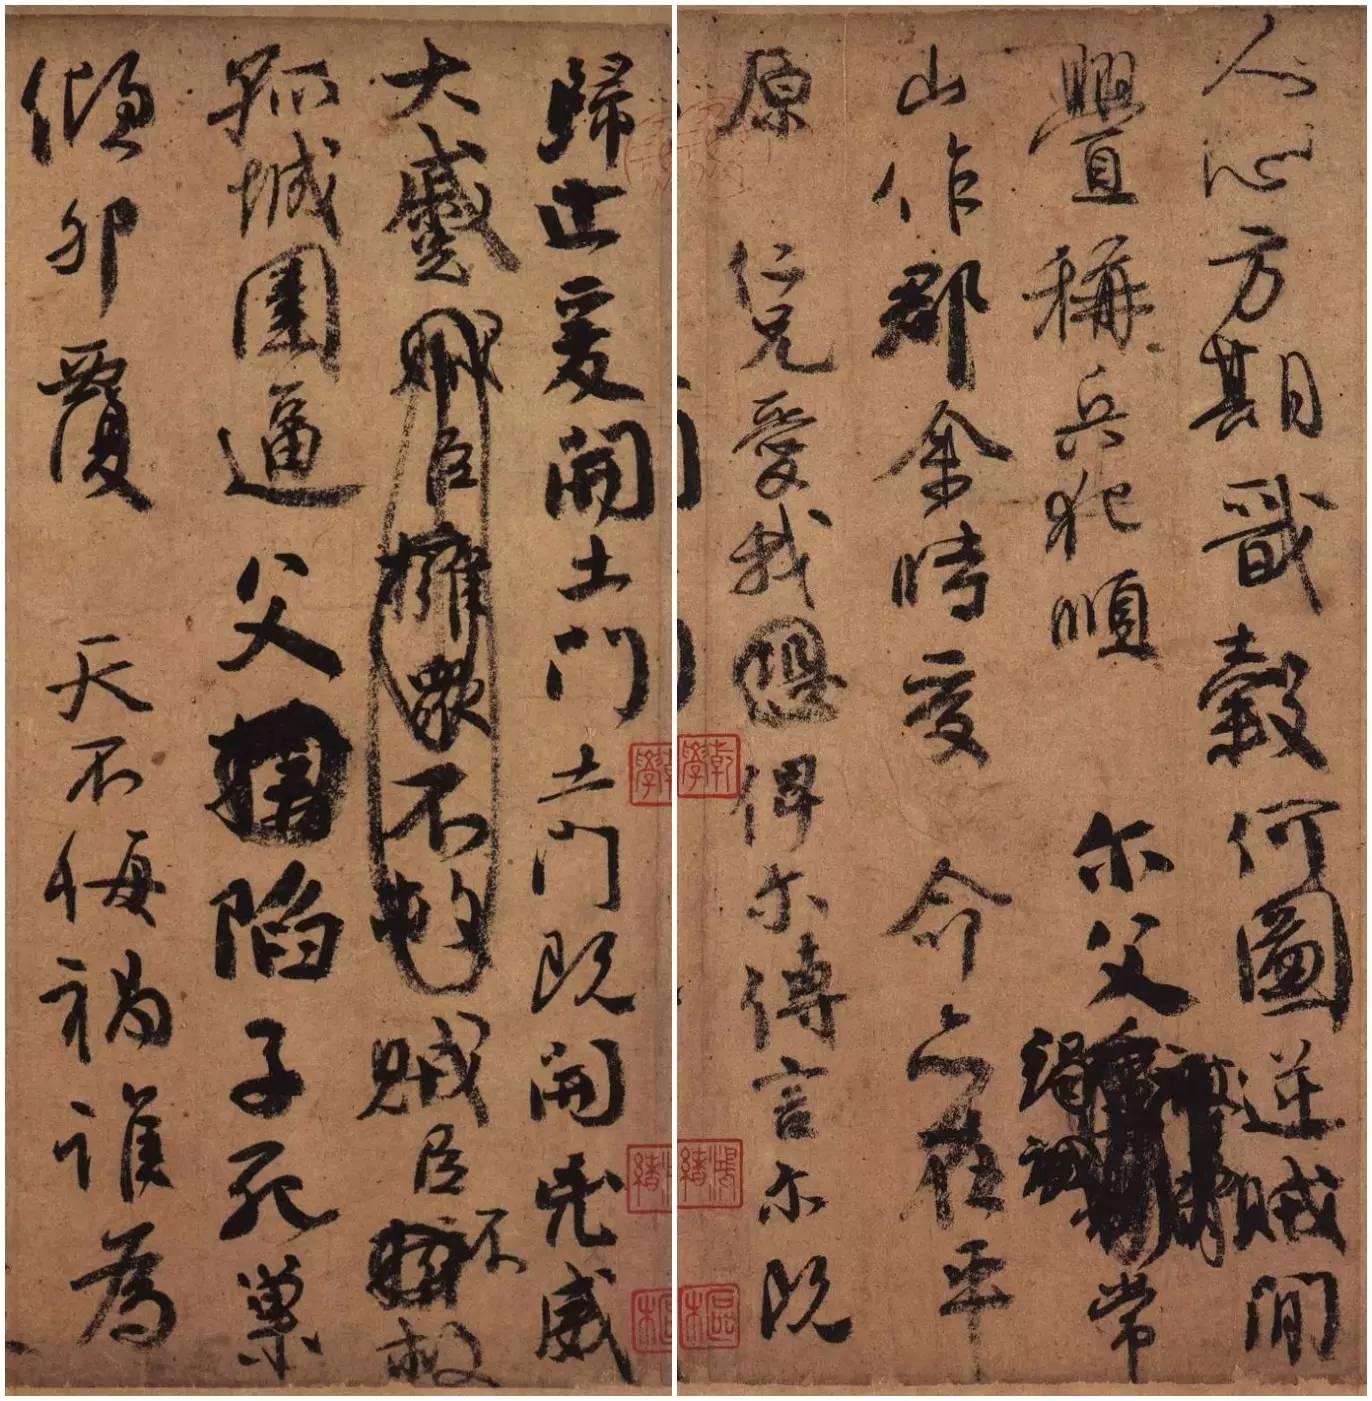 人心方期戩穀何圖逆賊閒
舋稱兵犯順
尔父
竭誠
常
山作郡余時受
命亦在平
原
仁兄愛我
俾尔傳言尔既
歸止爰開土門土門既開兇威
大蹙
賊臣擁衆不救
賊臣不
救
孤城圍逼
父
陷子死巢
傾卵覆
天不悔禍誰為